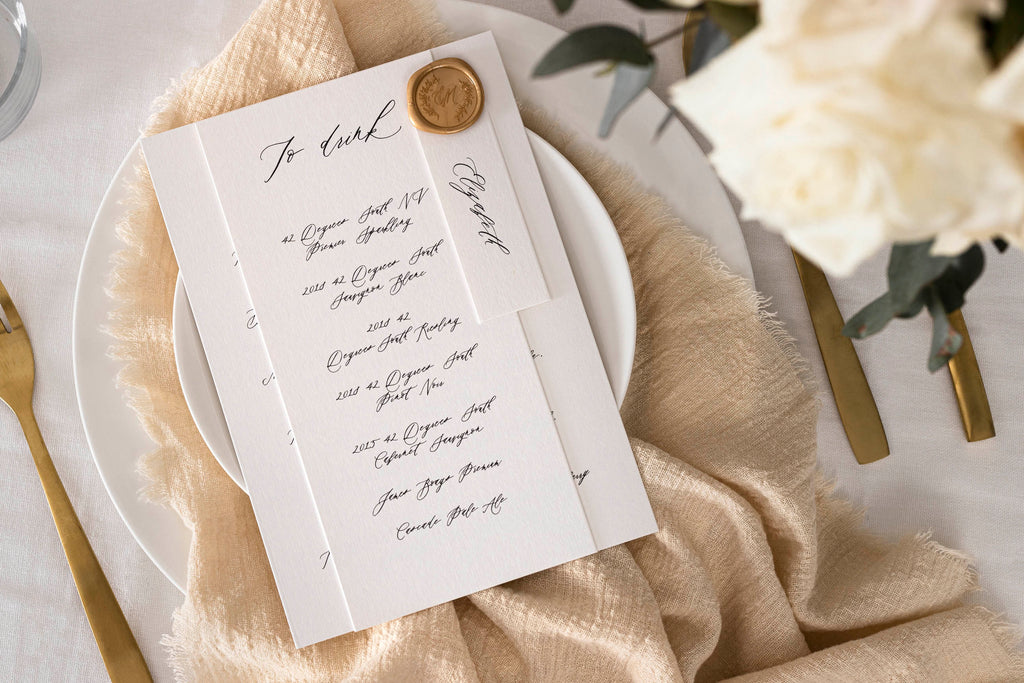 To drink
Elizabeth
42 Degrees South NV
Premier Sparkling
2018 42 Degrees South
Sauvignon Blanc
2018 42
Degrees South Riesling
2018 42 Degrees South
Pinot Noir
2015 42 Degrees South
Cabernet Sauvignon
James Boags Premium
Cascade Pale Ale